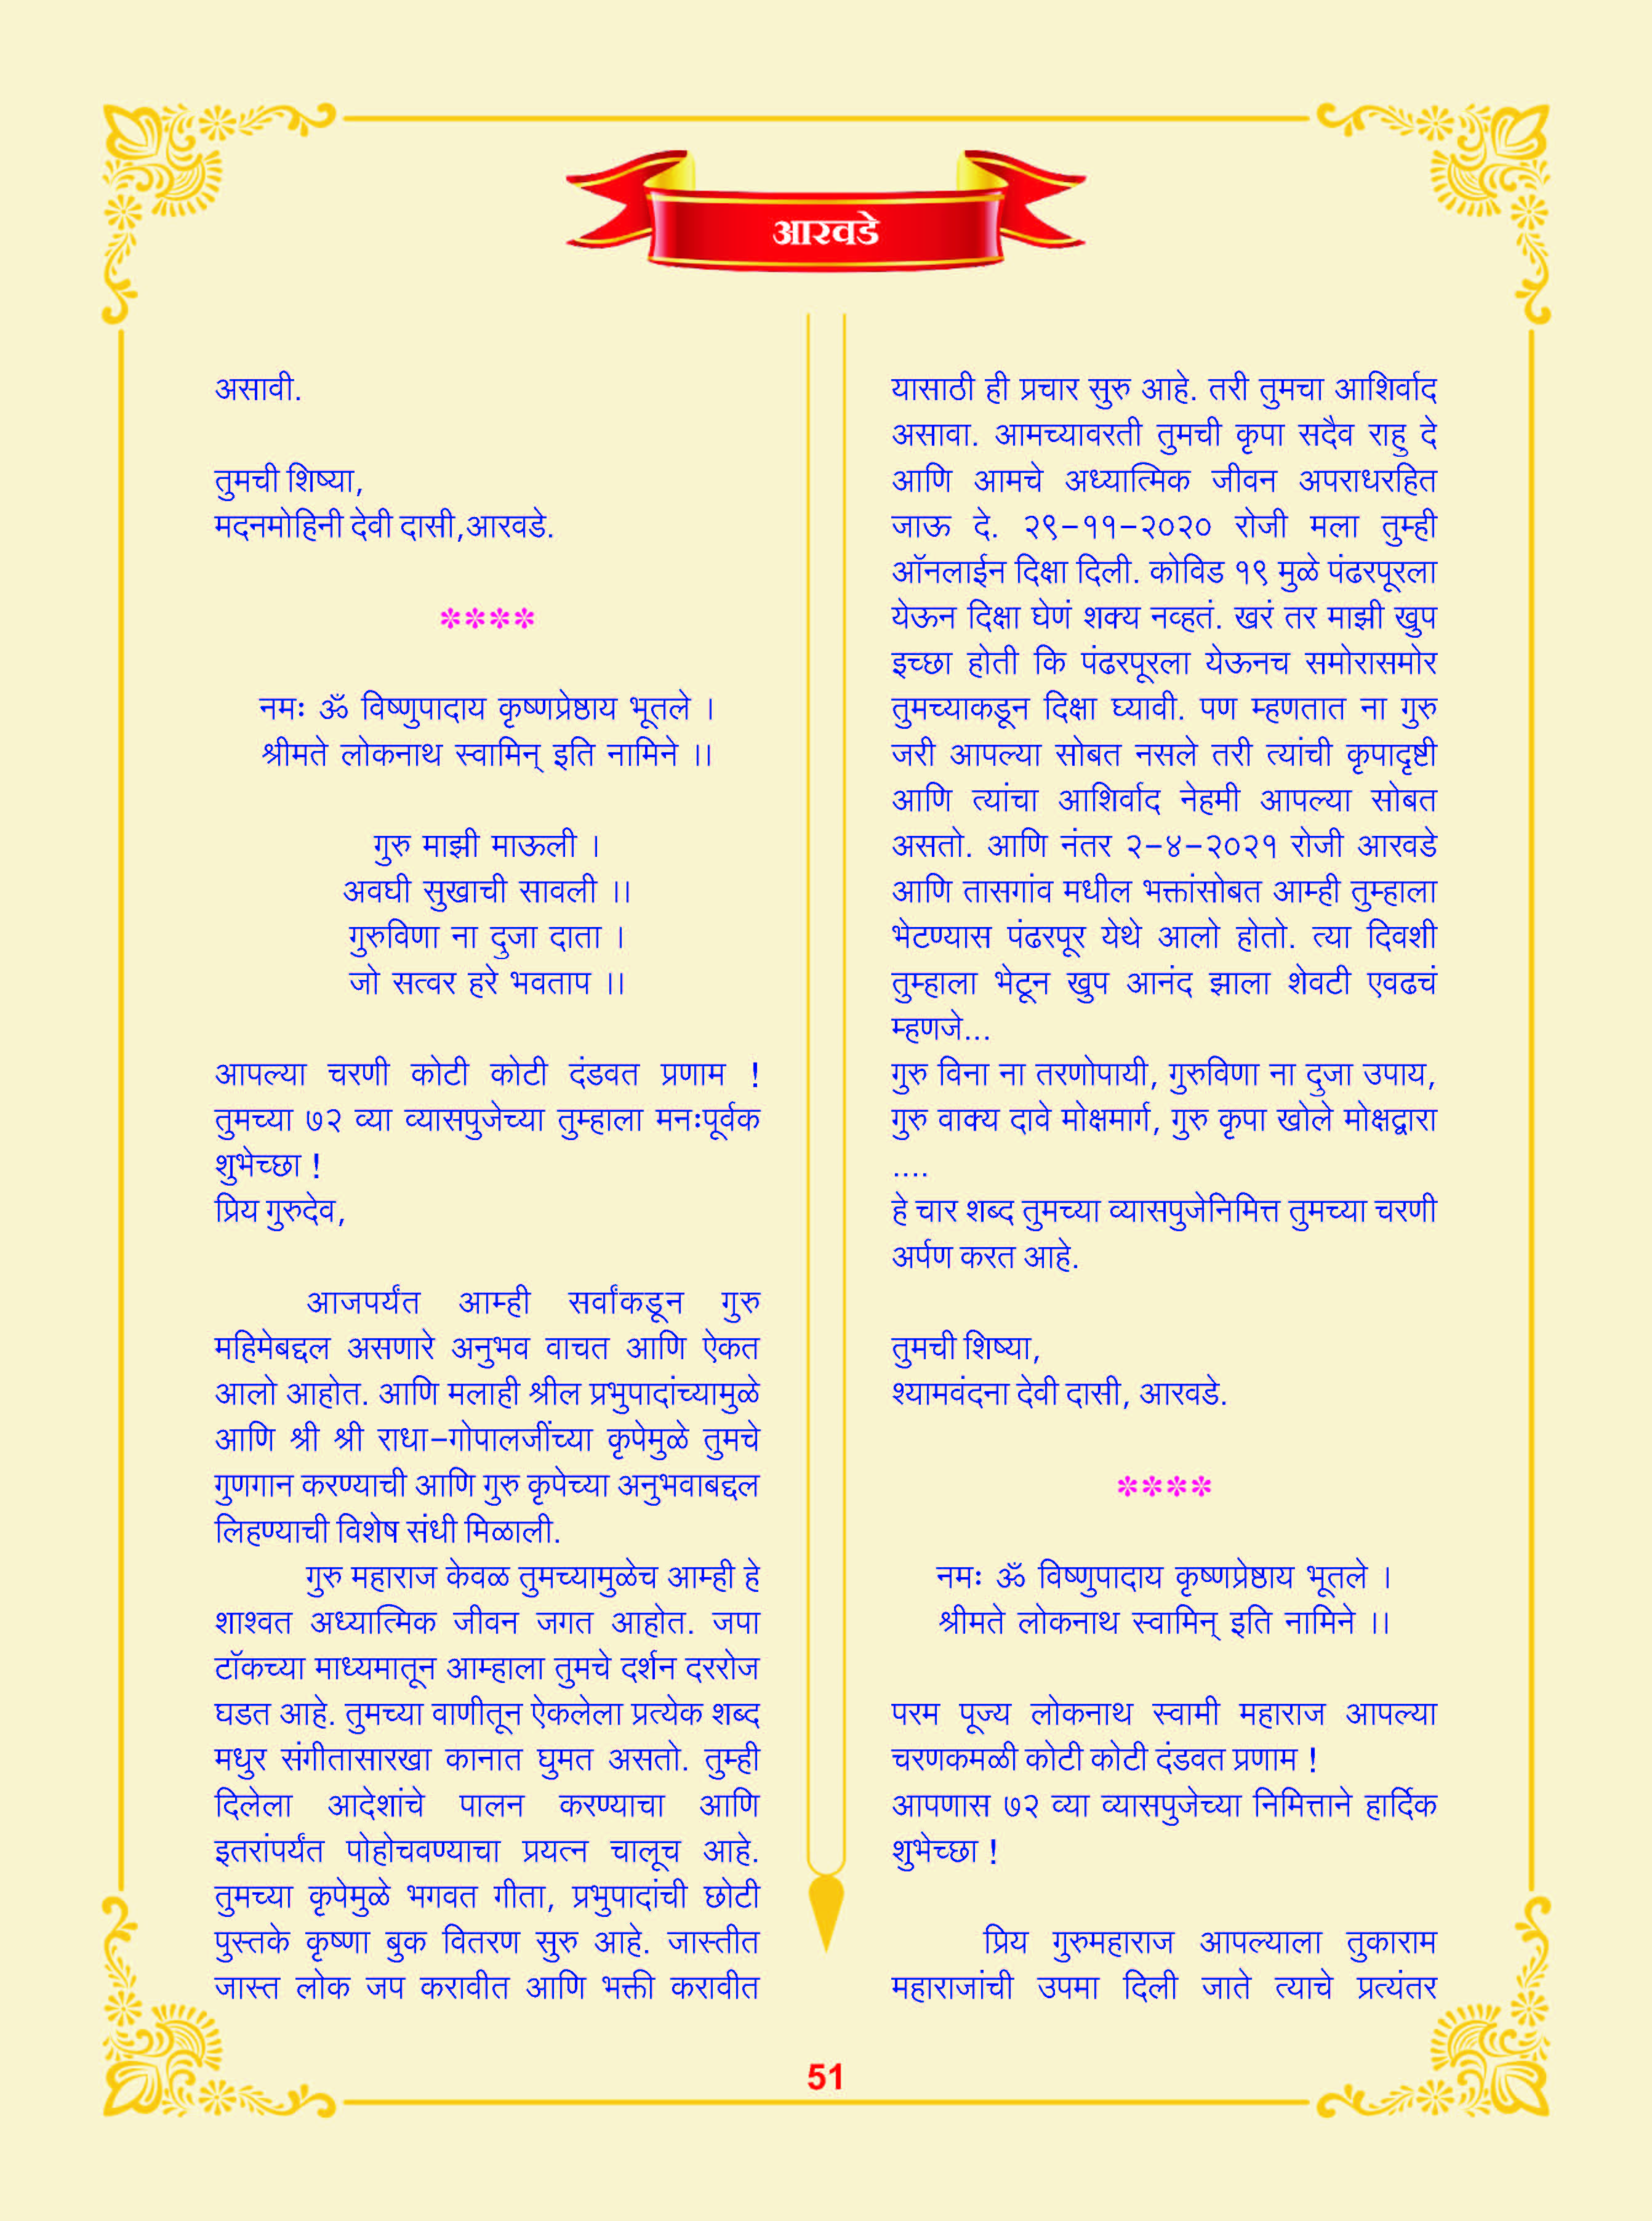 आरवडे
असावी.
तुमची शिष्या,
मदनमोहिनी देवी दासी,आरवडे.
****
नमः ॐ विष्णुपादाय कृष्णप्रेष्ठाय भूतले ।
श्रीमते लोकनाथ स्वामिन् इति नामिने ।।
गुरु माझी माऊली ।
अवघी सुखाची सावली ।।
गुरुविणा ना दुजा दाता ।
जो सत्वर हरे भवताप ।।
आपल्या चरणी कोटी कोटी दंडवत प्रणाम !
तुमच्या ७२ व्या व्यासपुजेच्या तुम्हाला मनःपूर्वक
शुभेच्छा !
प्रिय गुरुदेव,
आजपर्यंत आम्ही सर्वांकडून गुरु
महिमेबद्दल असणारे अनुभव वाचत आणि ऐकत
आलो आहोत. आणि मलाही श्रील प्रभुपादांच्यामुळे
आणि श्री श्री राधा-गोपालजींच्या कृपेमुळे तुमचे
गुणगान करण्याची आणि गुरु कृपेच्या अनुभवाबद्दल
लिहण्याची विशेष संधी मिळाली.
गुरु महाराज केवळ तुमच्यामुळेच आम्ही हे
शाश्वत अध्यात्मिक जीवन जगत आहोत. जपा
टॉकच्या माध्यमातून आम्हाला तुमचे दर्शन दररोज
घडत आहे. तुमच्या वाणीतून ऐकलेला प्रत्येक शब्द
मधुर संगीतासारखा कानात घुमत असतो. तुम्ही
दिलेला आदेशांचे पालन करण्याचा आणि
इतरांपर्यंत पोहोचवण्याचा प्रयत्न चालूच आहे.
तुमच्या कृपेमुळे भगवत गीता, प्रभुपादांची छोटी
पुस्तके कृष्णा बुक वितरण सुरु आहे. जास्तीत
जास्त लोक जप करावीत आणि भक्ती करावीत
यासाठी ही प्रचार सुरु आहे. तरी तुमचा आशिर्वाद
असावा. आमच्यावरती तुमची कृपा सदैव राहु दे
आणि आमचे अध्यात्मिक जीवन अपराधरहित
जाऊ दे. २९-११-२०२० रोजी मला तुम्ही
ऑनलाईन दिक्षा दिली. कोविड १९ मुळे पंढरपूरला
येऊन दिक्षा घेणं शक्य नव्हतं. खरं तर माझी खुप
इच्छा होती कि पंढरपूरला येऊनच समोरासमोर
तुमच्याकडून दिक्षा घ्यावी. पण म्हणतात ना गुरु
जरी आपल्या सोबत नसले तरी त्यांची कृपादृष्टी
आणि त्यांचा आशिर्वाद नेहमी आपल्या सोबत
असतो. आणि नंतर २-४-२०२१ रोजी आरवडे
आणि तासगांव मधील भक्तांसोबत आम्ही तुम्हाला
भेटण्यास पंढरपूर येथे आलो होतो. त्या दिवशी
तुम्हाला भेटून खुप आनंद झाला शेवटी एवढचं
म्हणजे...
गुरु विना ना तरणोपायी, गुरुविणा ना दुजा उपाय,
गुरु वाक्य दावे मोक्षमार्ग, गुरु कृपा खोले मोक्षद्वारा
....
हे चार शब्द तुमच्या व्यासपुजेनिमित्त तुमच्या चरणी
अर्पण करत आहे.
तुमची शिष्या,
श्यामवंदना देवी दासी, आरवडे.
****
नमः ॐ विष्णुपादाय कृष्णप्रेष्ठाय भूतले ।
श्रीमते लोकनाथ स्वामिन् इति नामिने ।।
परम पूज्य लोकनाथ स्वामी महाराज आपल्या
चरणकमळी कोटी कोटी दंडवत प्रणाम !
आपणास ७२ व्या व्यासपुजेच्या निमित्ताने हार्दिक
शुभेच्छा !
प्रिय गुरुमहाराज आपल्याला तुकाराम
महाराजांची उपमा दिली जाते त्याचे प्रत्यंतर
51